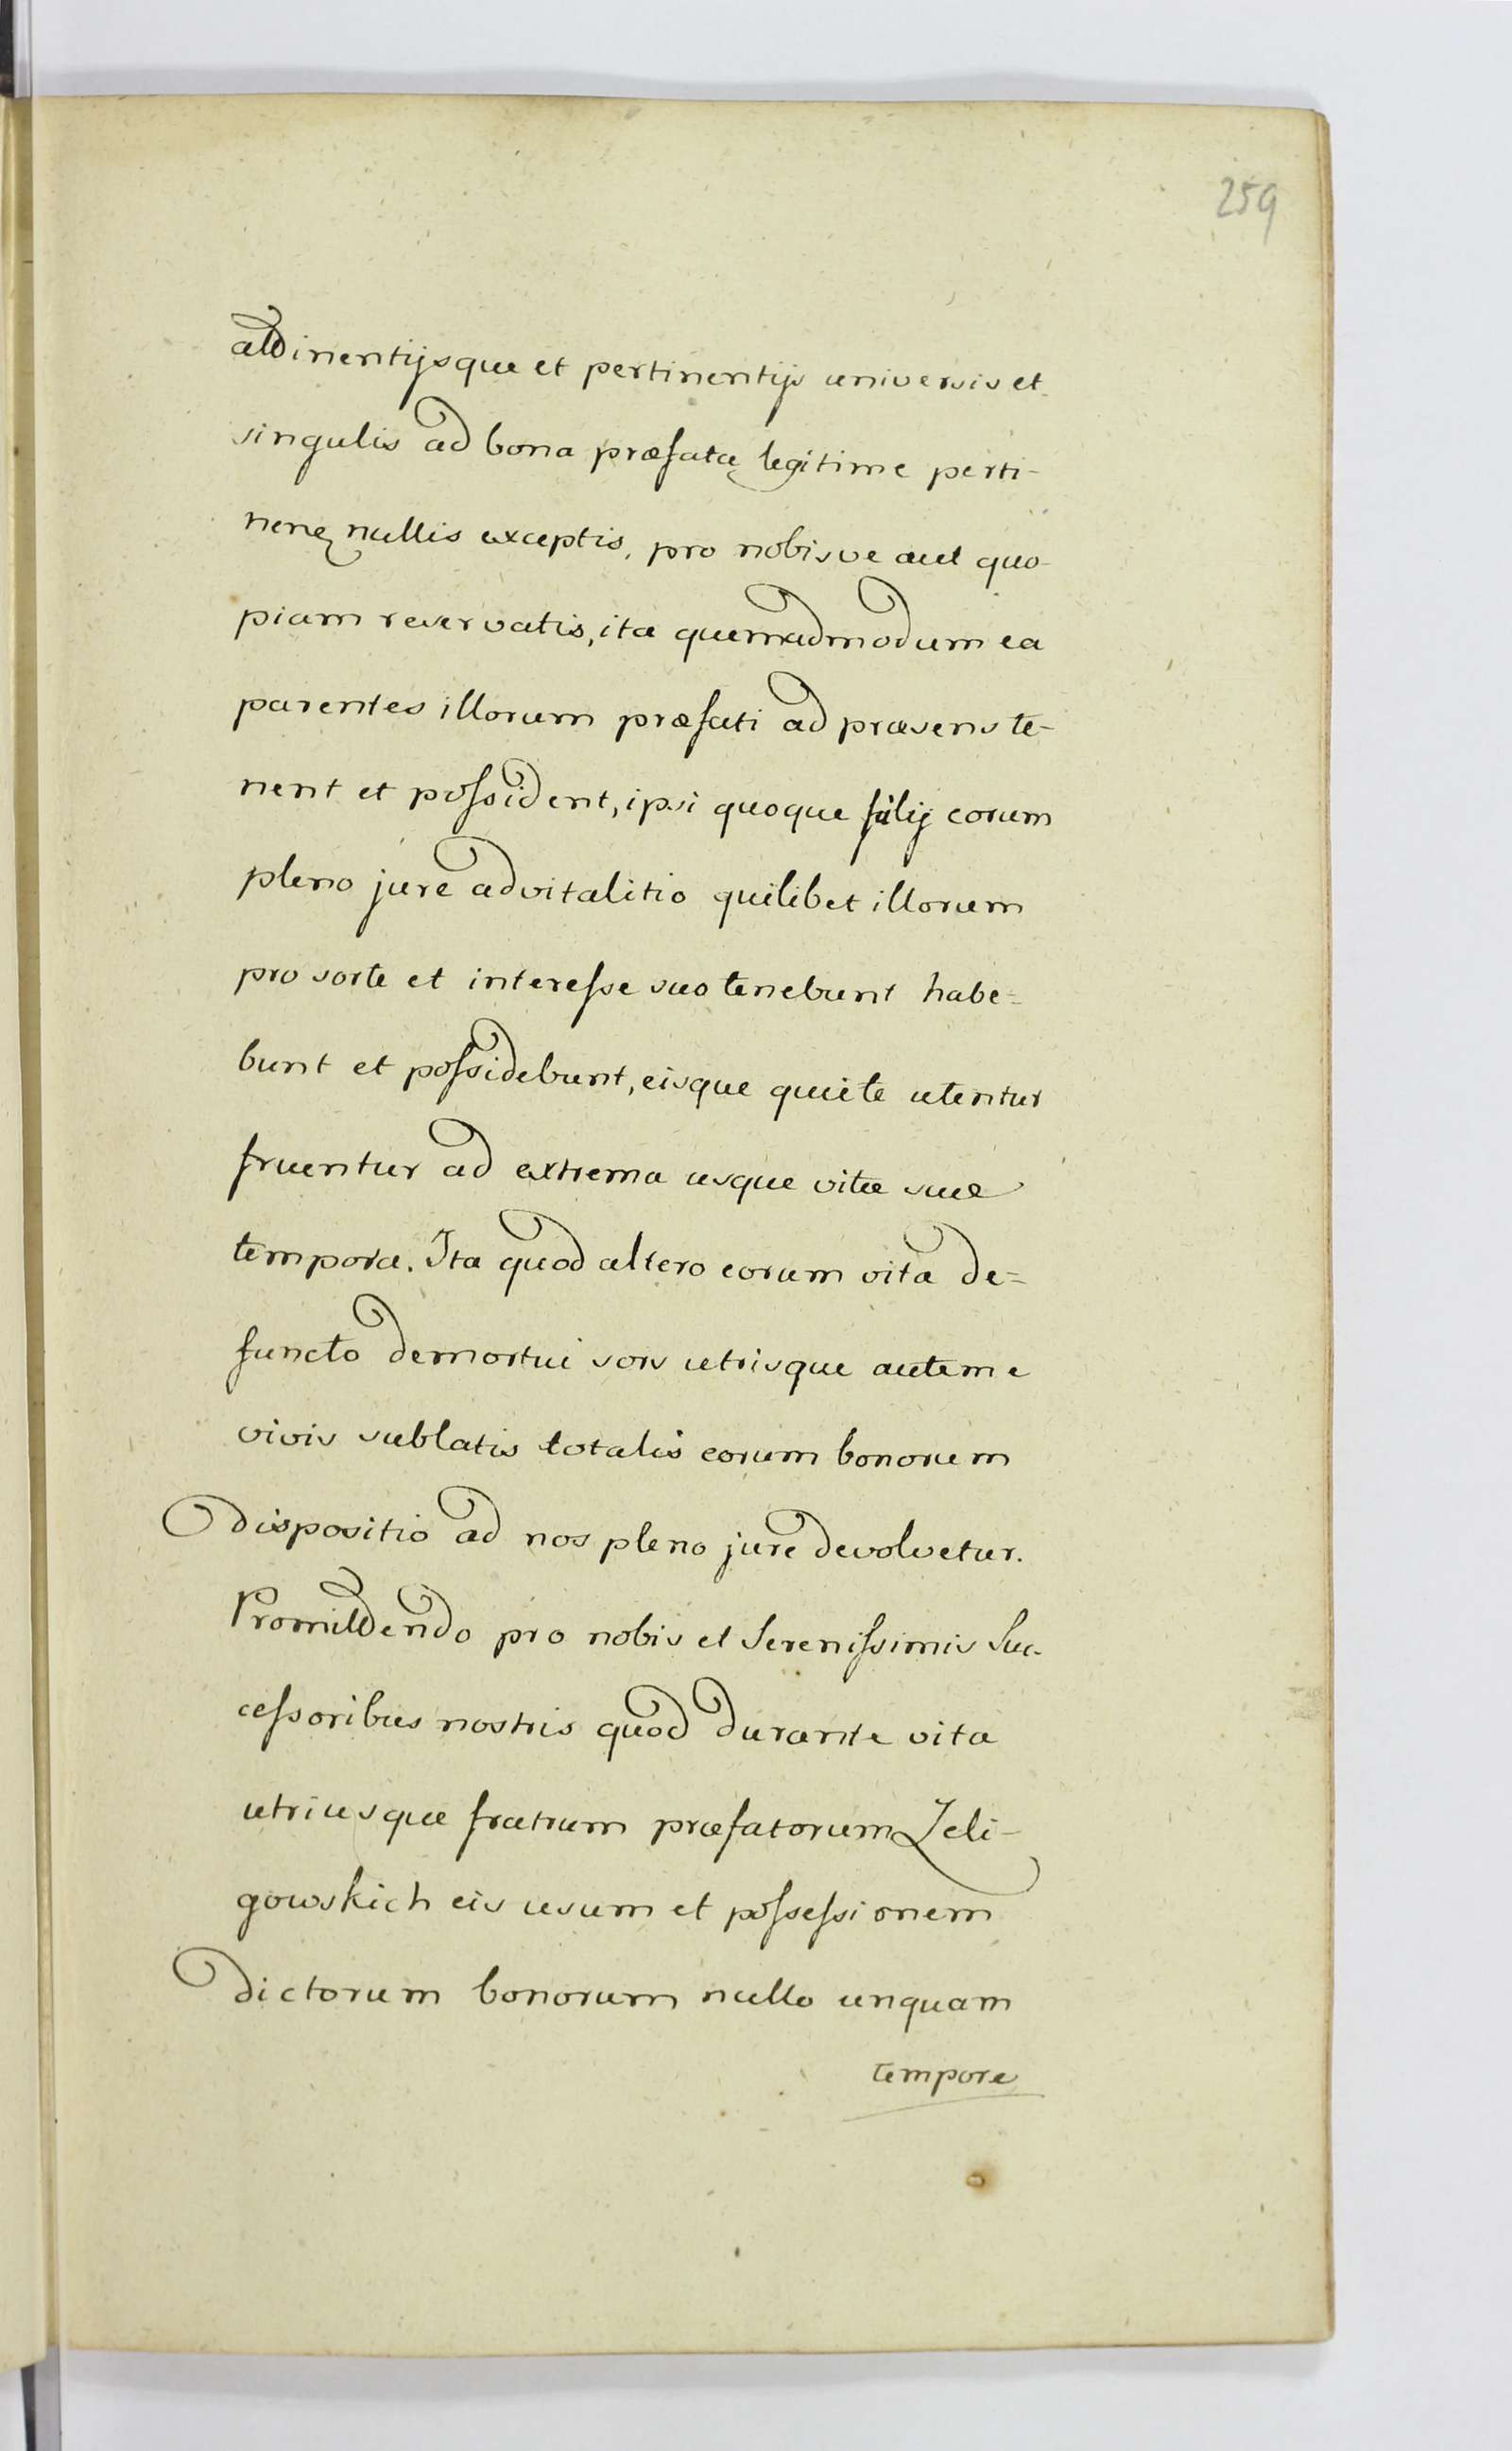 259
attinentijsque et pertinentijs universis et
singulis ad bona præfata legitime perti-
nenę nullis exceptis, pro nobisve aut quo-
piam reservatis, ita quemadmodum ea
parentes illorum præfati ad præsens te-
nent et possident, ipsi quoque filij eorum
pleno jure advitalitio quilibet illorum
pro sorte et interesse suo tenebunt habe=
bunt et possidebunt, eisque quiete utentur
fruentur ad extrema usque vitæ suæ
tempora. Ita quod altero eorum vita de=
functo demortui sors utrisque autem e
vivis sublatis totalis eorum bonorum
dispositio ad nos pleno jure devolvetur.
Promittendo pro nobis et Serenissimis Suc-
cessoribus nostris quod durante vita
utriusque fratrum præfatorum Zeli-
gowskich eis usum et possessionem
dictorum bonorum nullo unquam
tempore